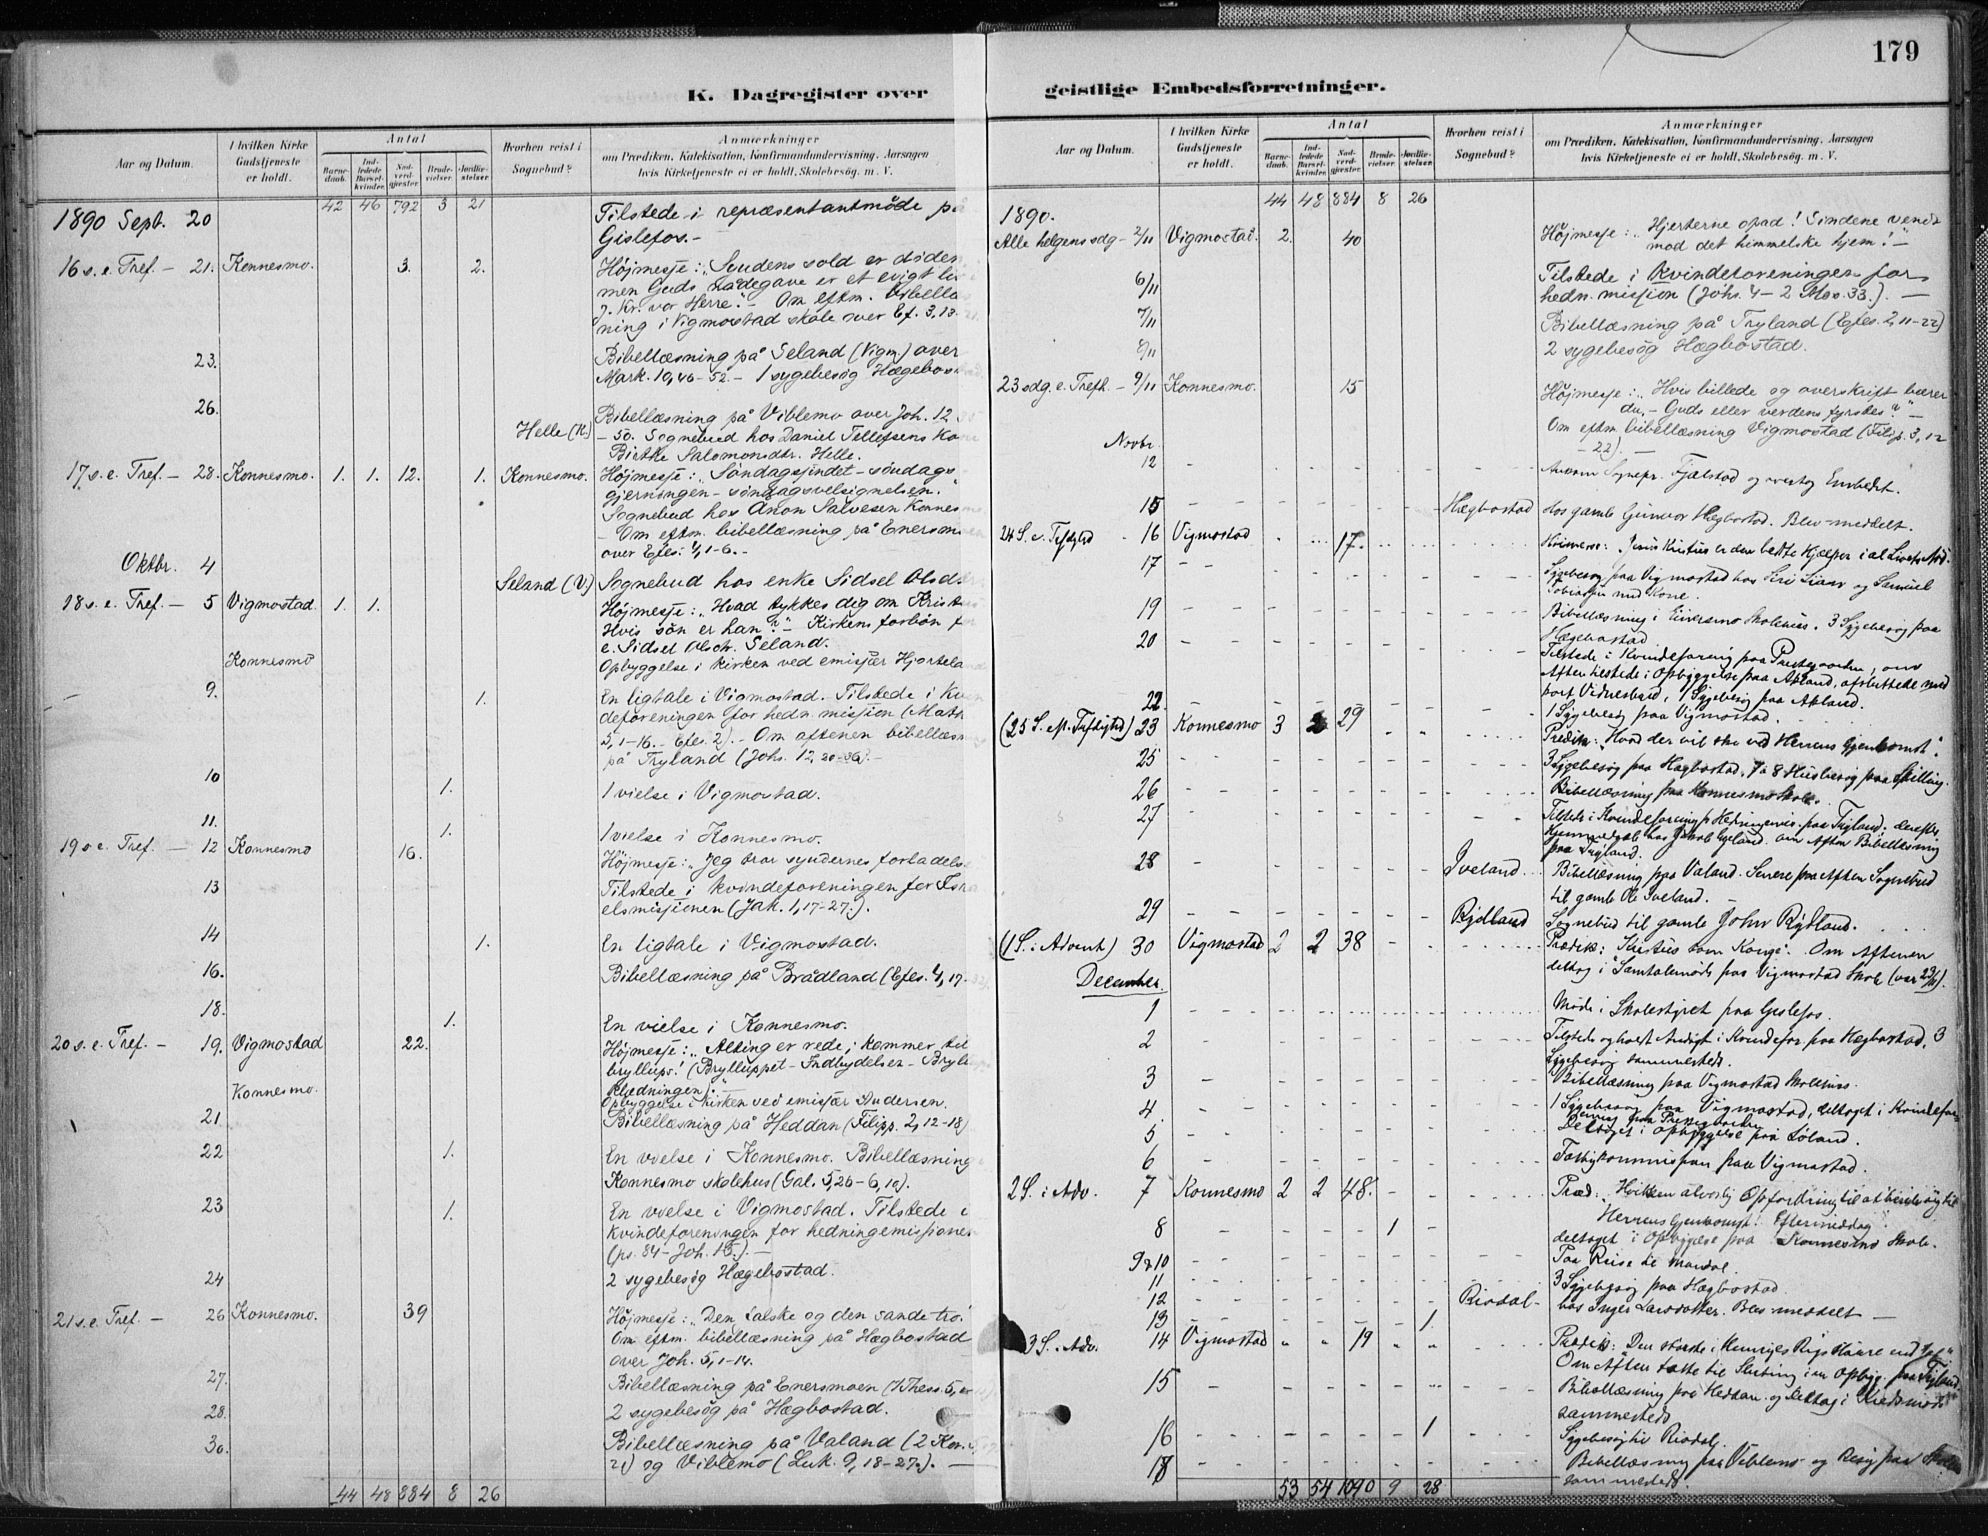 179
K. Dagregister over geistlige Embedsforretninger.
Aar og Datum.
I hvilken Kirke Gudstjeneste er holdt.
Antal
Barne-daab.
Ind-ledede Barsel-kvinder.
Nad-verd-gjester.
Brude-vielser.
Jordfæ-stelser.
Hvorhen reist i Sognebud?
Anmærkninger
om Prædiken, Katekisation, Konfirmandundervisning, Aarsagen
hvis Kirketjeneste ei er holdt, Skolebesøg. m. V.
42 46 792 3 21
1890 Sept. 20 Tilstede i repræsentantmøde på
Gislefos.-
16 s. e. Tref. - 21. Konnesmo. 3. 2. Højmesse: "Syndens sold er døden
men Guds nådegave er et evigt liv
J. Kr. vor Herre." - Om eftm. bibellæs
ning i Vigmostad skole over Ef. 3, 13-21.
23. Bibellæsning på Seland (Vigm) over
Mark. 10, 46-52. - 1 sygebesøg Hægebostad
26. Bibellæsning på Viblemo over Joh. 12
Helle (K) - 50. Sognebud hos Daniel Tellefsens Kone
Birthe Salomonsdtr. Helle.
17 s. e. Tref. - 28. Konnesmo. 1. 1. 12. 1. Konnesmo. Højmesse: "Søndagssindet - søndags
gjerningen - søndagsvelsignelsen."
Sognebud hos Anon Salvesen Konnesmo
- Om eftm. bibellæsning på Enersmoen
over Efes. 4, 1-6. -
Oktbr. 4 Seland (V.) Sognebud hos enke Sidsel Olsdtr
18 s. e. Tref. - 5 Vigmostad. 1. 1. Højmesse: "Hvad tykkes dig om Kristus
Hvis søn er han?" - Kirkens forbøn for
e. Sidsel Olsdtr. Seland.
Konnesmo Opbyggelse i kirken ved emissær Hjorteland
9. 1. En ligtale i Vigmostad. Tilstede i Kvin
deforeningen for hedn. missjon (Math
5, 1-16. - Efes. 2). - Om aftenen bibellæsn
på Tryland (Johs. 12, 20-36). -
10 1. 1 vielse i Vigmostad.
11. 1. 1 vielse i Konnesmo.
19 s. e. Tref. - 12 Konnesmo 16. Højmesse: "Jeg tror syndernes forladelse
13 Tilstede i kvindeforeningen for Isra
elsmissjonen (Jak. 1, 17-27.).
14 1. En ligtale i Vigmostad.
16. Bibellæsning på Brådland (Efes. 4, 17-
18. 1. En vielse i Konnesmo.
20 s. e. Tref. - 19. Vigmostad 22. Højmesse: "Alting er rede, kommer til
bryllups! (Brylluppet - Indbydelsen - Bryllups
klædningen)."
Konnesmo. Opbyggelse i kirken ved emissær Andersen.
21 Bibellæsning på Heddan (Filipp. 2, 12-18)
22 1. En vielse i Konnesmo. Bibellæsning
Konnesmo skolehus (Gal. 5, 26-6, 10).
23 1. En vielse i Vigmostad. Tilstede i
kvindeforeningen for hedningemissionen
(ps. 84 - Joh. 15.). -
24 2 sygebesøg Hægebostad.
21 s. e. Tref. - 26 Konnesmo. 39 Højmesse: "Den falske og den sande tro.
Om eftm. bibellæsning på Hægbostad
over Joh. 5, 1-14.
27. Bibellæsning på Enersmoen (1 Thess. 5,
28. 2 sygebesøg på Hægbostad.
30. Bibellæsning på Valand (2 Kor.
21) og Viblemo (Luk. 9, 18-27.). -
44 48 884 8 26
Aar og Datum.
I hvilken Kirke Gudstjeneste er holdt.
Antal
Barne-daab.
Ind-ledede Barsel-kvinder.
Nad-verd-gjester.
Brude-vielser.
Jordfæ-stelser.
Hvorhen reist i Sognebud?
Anmærkninger
om Prædiken, Katekisation, Konfirmandundervisning, Aarsagen
hvis Kirketjeneste ei er holdt, Skolebesøg. m. V.
1890. 44 48 884 8 26
Alle helgens sdg - 2/11 Vigmostad. 2. 40 Højmesse: "Hjerterne opad! Sindene vendt
mod det himmelske hjem!" -
6/11 Tilstede i kvindeforeningen for
hedn. missjon (Johs. 4 - 2 Mos. 33.). -
7/11 Bibellæsning på Tryland (Efes. 2, 11-22)
8/11 2 sygebesøg Hægbostad.
23 sdg. e. Trefh. - 9/11 Konnesmo. 15 Højmesse: "Hvis billede og overskrift bærer
du, - Guds eller verdens fyrstes?" -
Om eftm. bibellæsning Vigmostad (Filip. 3, 12
-22). -
Novbr.
12 Ankom Sognepr. Fjælstad og overtog Embedet.
15 Hægbostad Hos gamle Gunvor Hægbostad. Blev meddelt.
24 S. e. Trefoldighed 16 Vigmostad 17. Høimesse: Jesus Kristus er den bedste Hjælper i al Livets Nød.
17 Sygebesøg paa Vigmostad hos Siri Liane og Samuel
Tobiassen med Kone.
19 Bibellæsning i Enersmo Skolehus. 3 Sygebesøg paa
Hægebostad
20 Tilstede i Kvindeforening paa Præstegaarden, om
Aften tilstede i Opbyggelse paa Apland, afsluttede med
kort Vidnesbyrd, 1 Sygebesøg paa Apland.
22 1 Sygebesøg paa Vigmostad.
(25 S. ef. Trefoldighed) 23 Konnesmo 3 2 29 Prædik: "Hvad der vil ske ved Herrens Gjenkomst".
25 3 Sygebesøg paa Hægbostad, 7 a 8 Husbesøg paa Spilling.
26 Bibellæsning paa Konnesmo Skole.
27 Tilstede i Kvindeforening f. Hedningemis. paa Tryland; derefter
Hjemmedaab hos Jakob Egeland. om Aften Bibellæsning
paa Tryland.
28 Iveland Bibellæsning paa Valand. Senere paa Aften Sognebud
til gamle Ole Iveland. -
29 Rydland Sognebud til gamle John Rydland.
(1 S. i Advent) 30 Vigmostad 2 2 38 Prædik: "Kristus som Konge". Om Aftenen
deltog i Samtalemøde paa Vigmostad Skole (var 23/11).
December.
1 Møde i Skolestyret paa Gislefos.
2 Tilstede og holdt Andagt i Kvindefor. paa Hægbostad, 3
Sygebesøg sammesteds.
3 Bibellæsning paa Vigmostad Skolehus.
4 1 Sygebesøg paa Vigmostad, deltaget i Kvindefor
ening paa Præstegaarden
5 Deltaget i Opbyggelse paa Løland.
6 Fattigkommission paa Vigmostad.
2 S. i Adv. 7 Konnesmo 2 2 48. Præd: "Hvilken alvorlig Opfordring til at berede sig til
Herrens Gjenkomst". Eftermiddag
deltaget i Opbyggelse paa Konnesmo Skole.
8 1
9 & 10 Paa Reise til Mandal.
11 3 Sygebesøg paa Hægbostad.
12 Risdal- hos Inger Larsdatter. Blev meddelt -
13 1
3 S. i Adv. 14 Vigmostad 19 Prædik: "Den største i Himmeriges Rige
Om Aften talte til Slutning i en Opbyg. paa Tryland
15 Bibellæsning paa Heddan og deltog i Kredsmøde
sammesteds
16 1 Sygebesøg til Risdal.
18 Bibellæsning paa Viblemo og Besøg paa Skolen
sammesteds.
53 54 1090 9 28